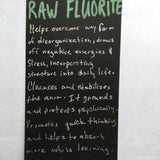 RAW FLUORITE
Helps overcome any form
of disorganization, draws
off negative energies &
Stress, incorporating
structure into daily life.
Cleanses and stabilizes
the aura. It grounds
and protects psychically,
promotes quick thinking,
and helps to absorb
more while learning.